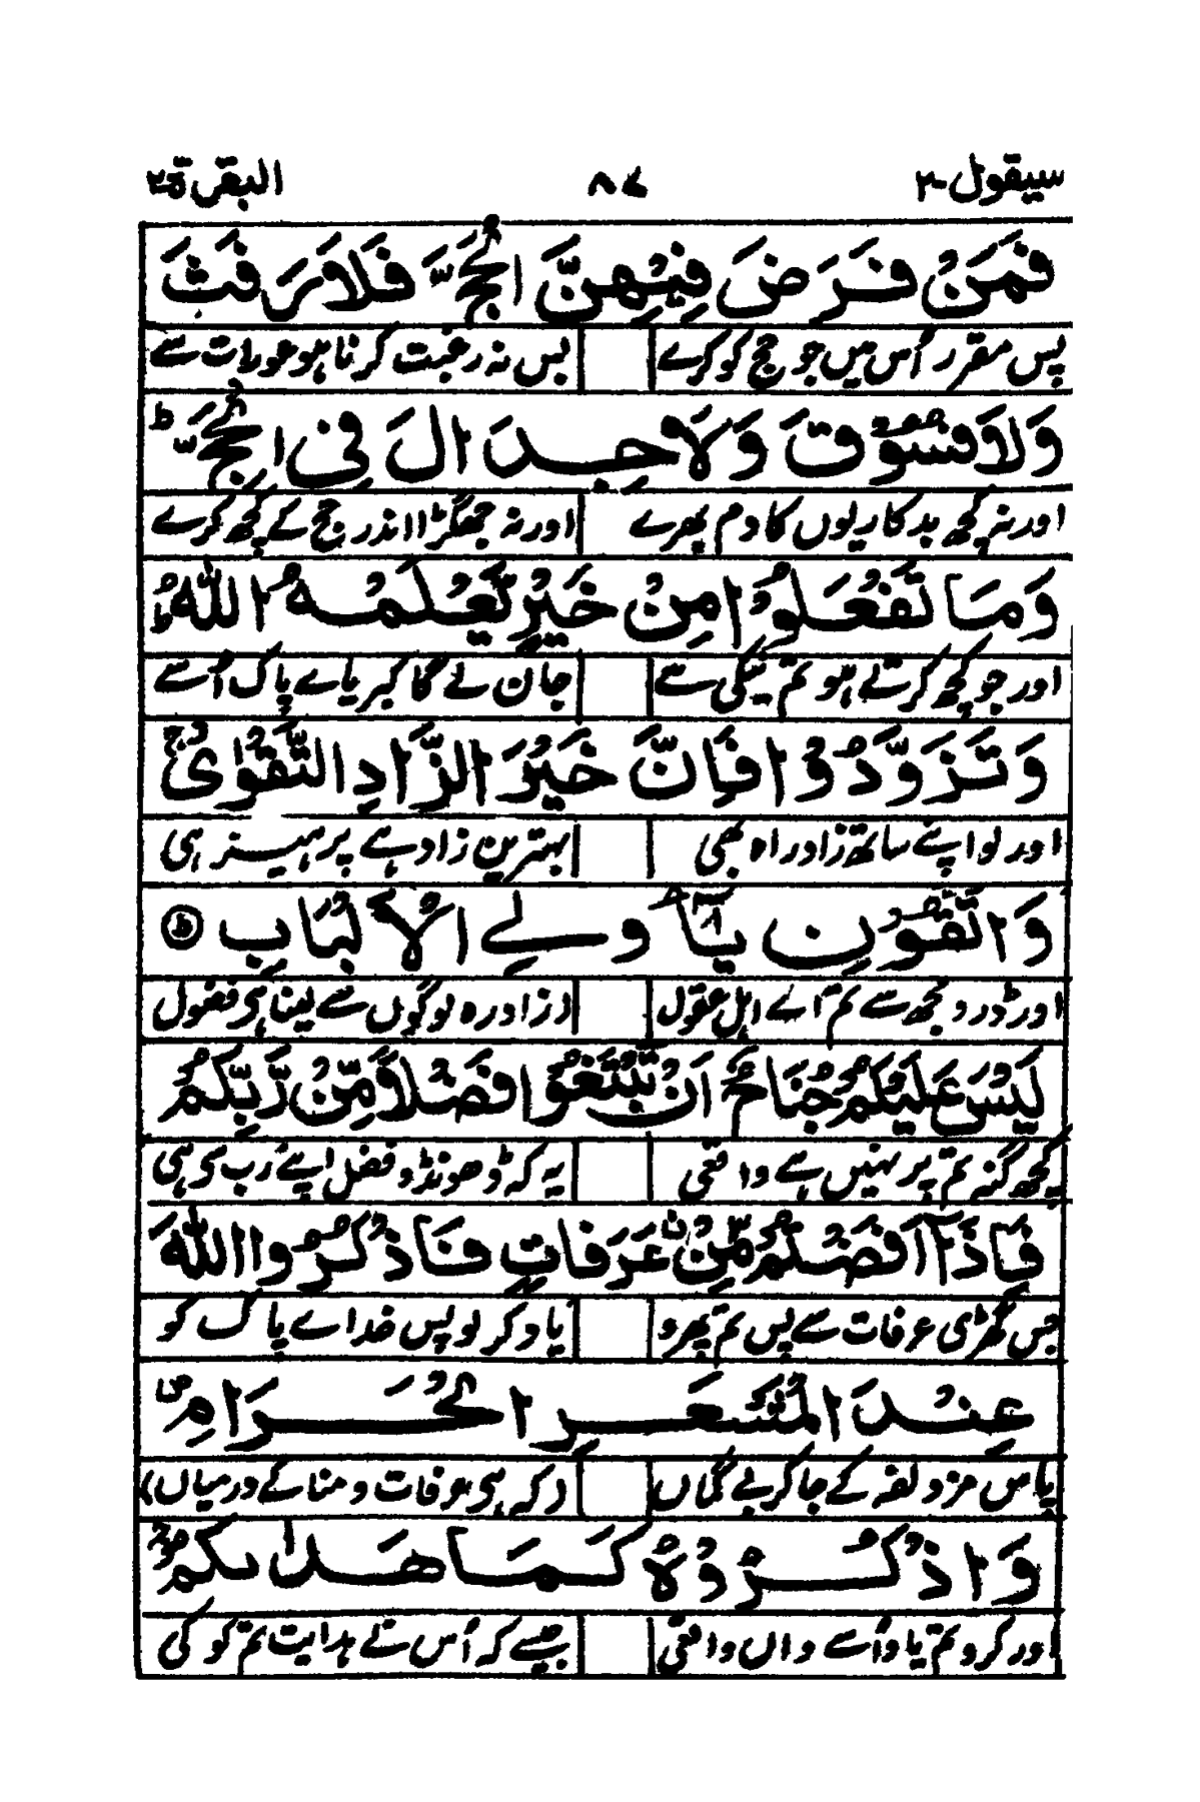 سیقول-۲ ۸۷ البقرة-۲
فَمَنْ فَرَضَ فِيْهِنَّ الْحَجَّ فَلَا رَفَثَ
پس مقرر اُس میں جو حج کو کرے بس نہ رغبت کرنا ہو عورات سے
وَلَا فُسُوْقَ وَلَا جِدَالَ فِی الْحَجِّ ؕ
اور نہ کچھ بدکاریوں کا دم بھرے اور نہ جھگڑا اندر حج کے کچھ کرے
وَمَا تَفْعَلُوْا مِنْ خَيْرٍ يَّعْلَمْهُ اللّٰهُ ؕ
اور جو کچھ کرتے ہو تم نیکی سے جان لے گا کبریاے پاک اُسے
وَتَزَوَّدُوْا فَاِنَّ خَيْرَ الزَّادِ التَّقْوٰى ۚ
اور لو اپنے ساتھ زاد راہ بھی بہترین زاد ہے پرہیز ہی
وَاتَّقُوْنِ يٰٓاُولِی الْاَلْبَابِ ط
اور ڈرو مجھ سے تم اے اہل عقول (زاد رہ لوگوں سے لینا ہی فضول
لَيْسَ عَلَيْكُمْ جُنَاحٌ اَنْ تَبْتَغُوْا فَضْلًا مِّنْ رَّبِّكُمْ
کچھ گنہ تم پر نہیں ہے واقعی یہ کہ ڈھونڈو فضل اپنے رب کی ہی
فَاِذَآ اَفَضْتُمْ مِّنْ عَرَفَاتٍ فَاذْكُرُوا اللّٰهَ
جس گھڑی عرفات سے پس تم پھرو یاد کر لو پس خداے پاک کو
عِنْدَ الْمَشْعَرِ الْحَرَامِ ۪
پاس مزدلفہ کے جا کر بے گماں (کہ ہی عرفات و منا کے درمیاں)
وَاذْكُرُوْهُ كَمَا هَدٰىكُمْ ۚ
اور کرو تم یاد اُسے واں واقعی جیسے کہ اُس نے ہدایت تم کو کی